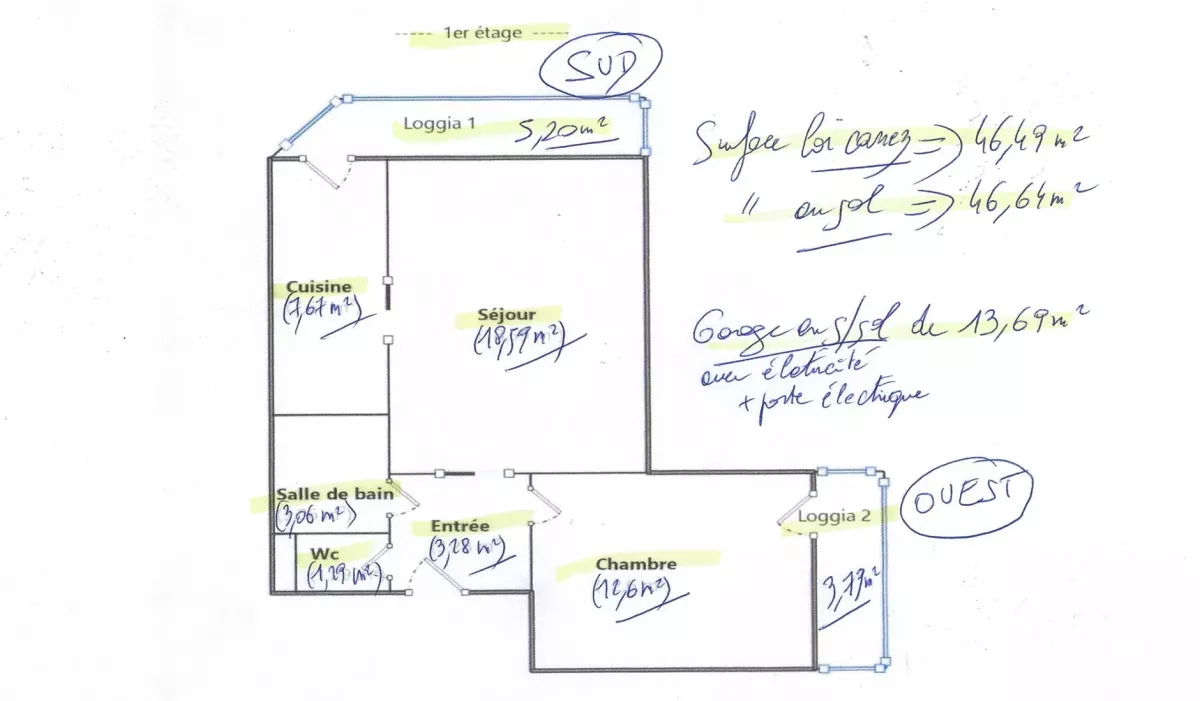 1er étage
SUD
Loggia 1 5,20m²
Surface loi carrez => 46,49m²
" au sol => 46,64m²
Cuisine
(7,67m²)
Séjour
(18,59m²)
Garage en s/sol de 13,69m²
avec électricité
+ porte électrique
Salle de bain
(3,06m²)
Entrée
(3,28m²)
Wc
(1,29m²)
Chambre
(12,6m²)
Loggia 2
3,73m²
OUEST